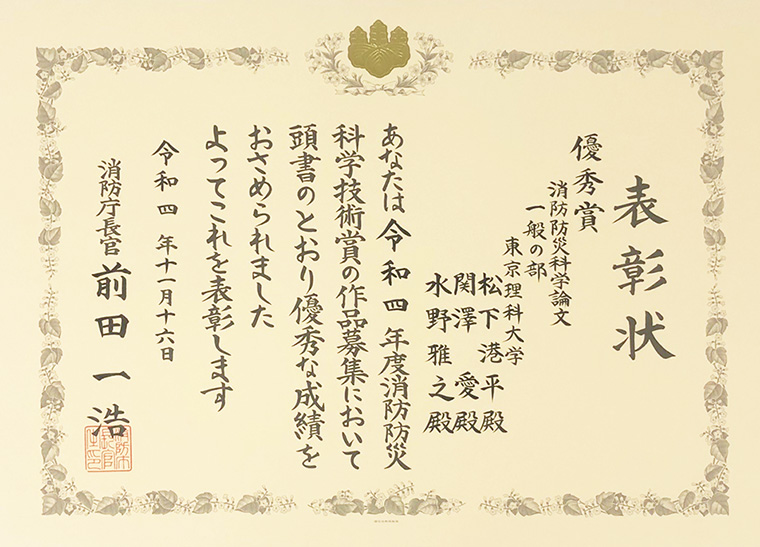 表彰状
優秀賞
消防防災科学論文
一般の部
東京理科大学
松下港平殿
関澤 愛殿
水野雅之殿
あなたは令和四年度消防防災
科学技術賞の作品募集において
頭書のとおり優秀な成績を
おさめられました
よってこれを表彰します
令和四年十一月十六日
消防庁長官 前田一浩